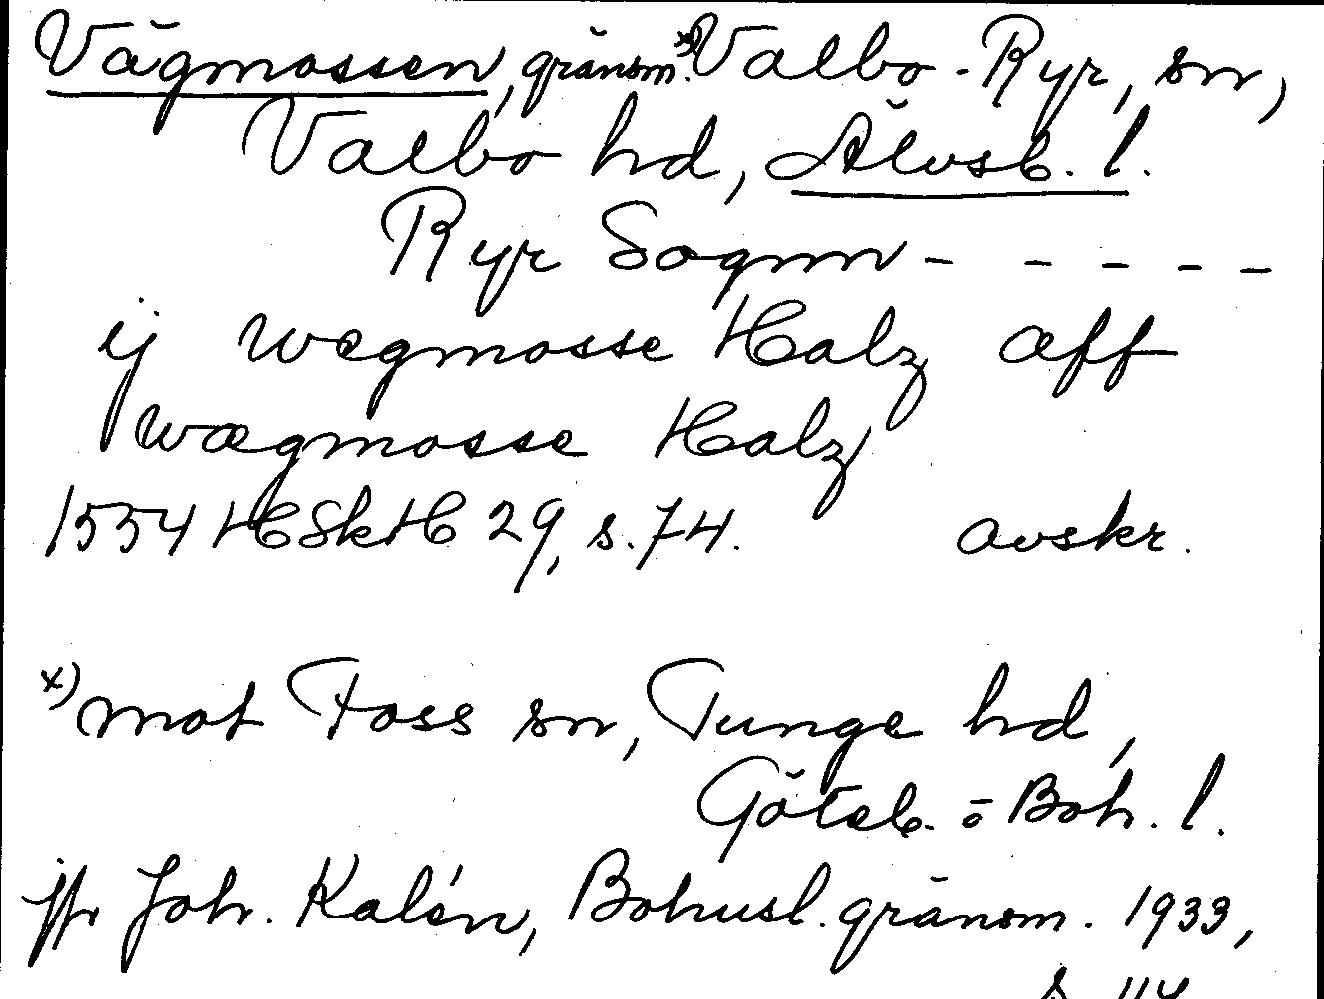 Vägmossen, gränsm.x) Valbo-Ryr, sn,
Valbo hd, Älvsb. l.
Ryr Sognn - - - - -
ij wegmosse Halz aff
wægmosse Halz
1554 HSkH 29, s. 74. avskr.
x) mot Foss sn, Tunge hd,
Göteb. o Boh. l.
jfr Joh. Kalén, Bohusl. gränsm. 1933,
s. 114